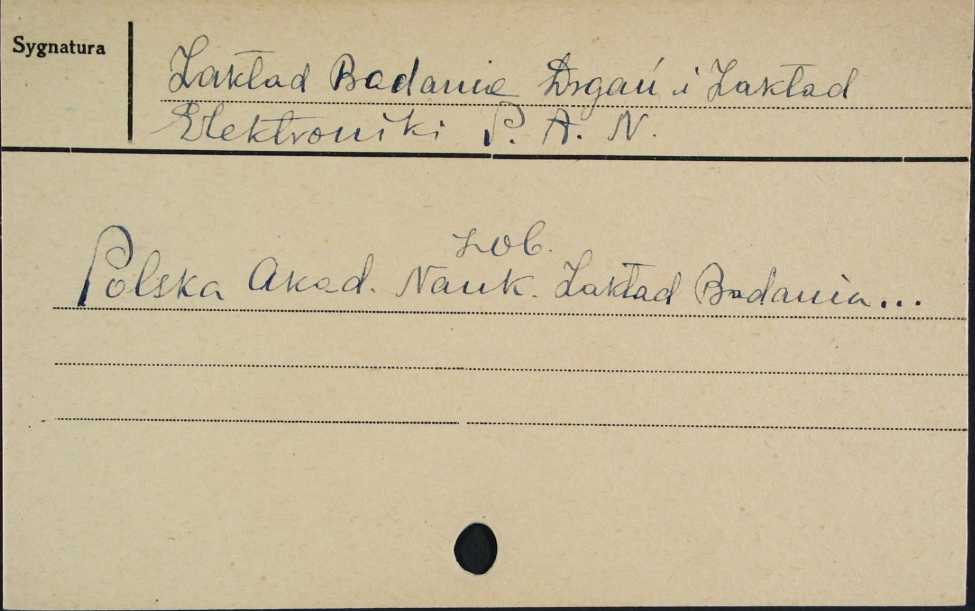 Sygnatura
Zakład Badania Drgań i Zakład
Elektroniki P. A. N.
zob.
Polska Akad. Nauk. Zakład Badania...